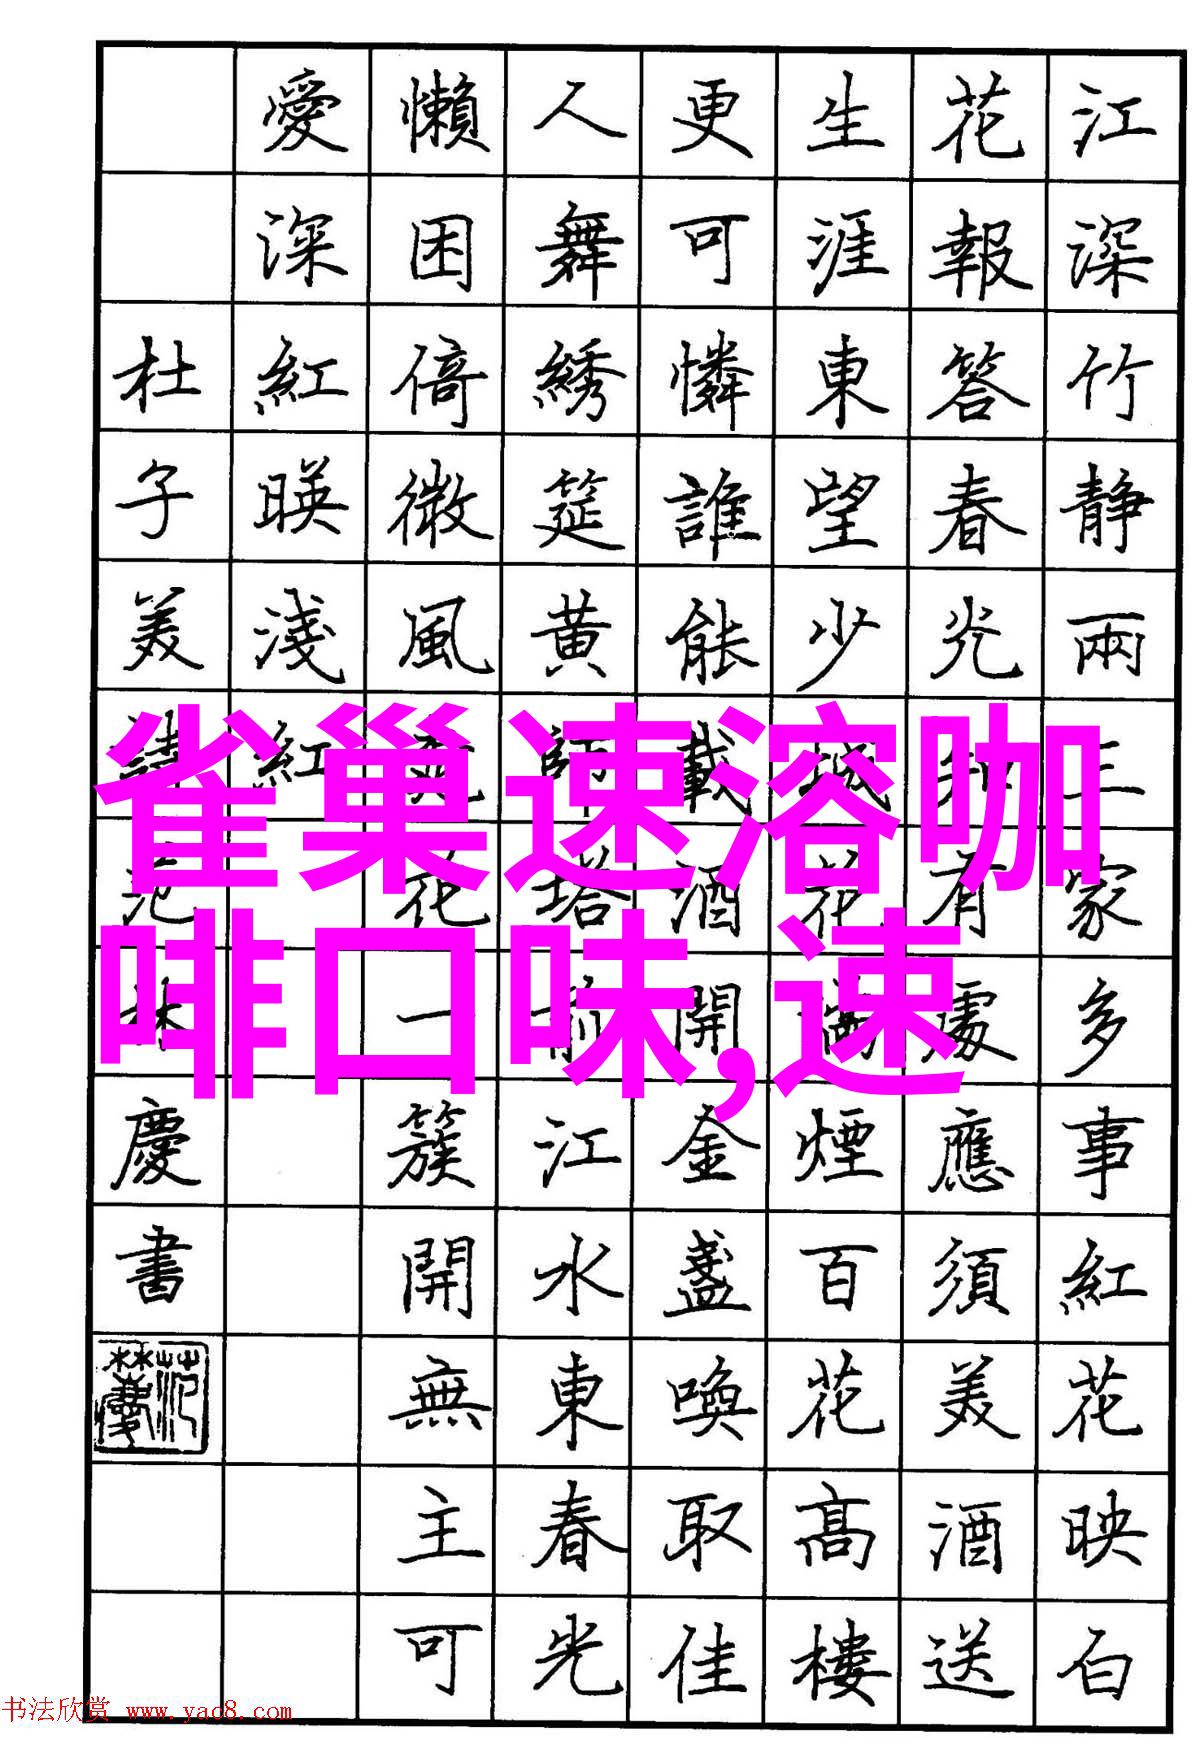 江深竹静兩三家多事紅花映白
花報答春光知有處應須美酒送
生涯東望少城花滿煙百花高樓
更可憐誰能載酒開金盞喚取佳
人舞綉筵黄師塔前江水東春光
懶困倚微風桃花一簇開無主可
愛深紅暎淺紅
杜子美詩范林慶書
范林慶
雀巢速溶咖
啡口味,速
书法欣赏 www.yac8.com